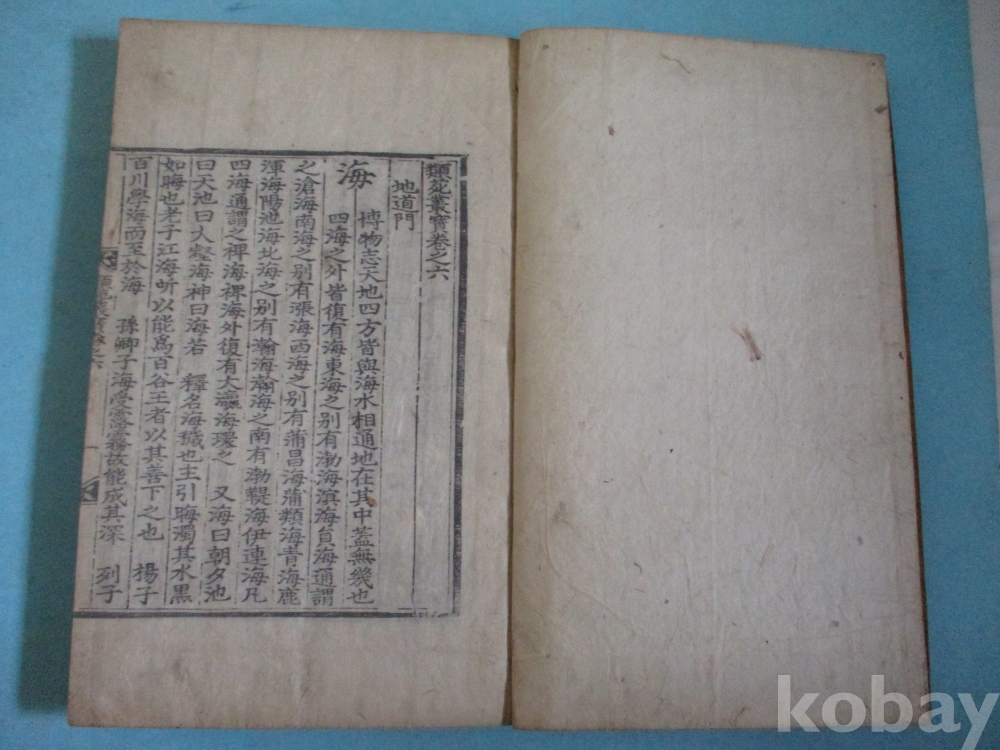 類苑叢寶卷之六
地道門
海 博物志天地四方皆與海水相通地在其中蓋無幾也
四海之外皆復有海東海之别有渤海溟海員海通謂
之滄海南海之别有漲海西海之别有蒲昌海蒲類海青海鹿
渾海陽池海北海之别有瀚海瀚海之南有渤鞮海伊連海凡
四海通謂之裨海裨海外復有大瀛海環之 又海曰朝夕池
曰天池曰大壑海神曰海若 釋名海穢也主引晦濁其水黒
如晦也老子江海所以能爲百谷王者以其善下之也 楊子
百川學海而至於海 孫卿子海受 霧故能成其深 列子
kobay